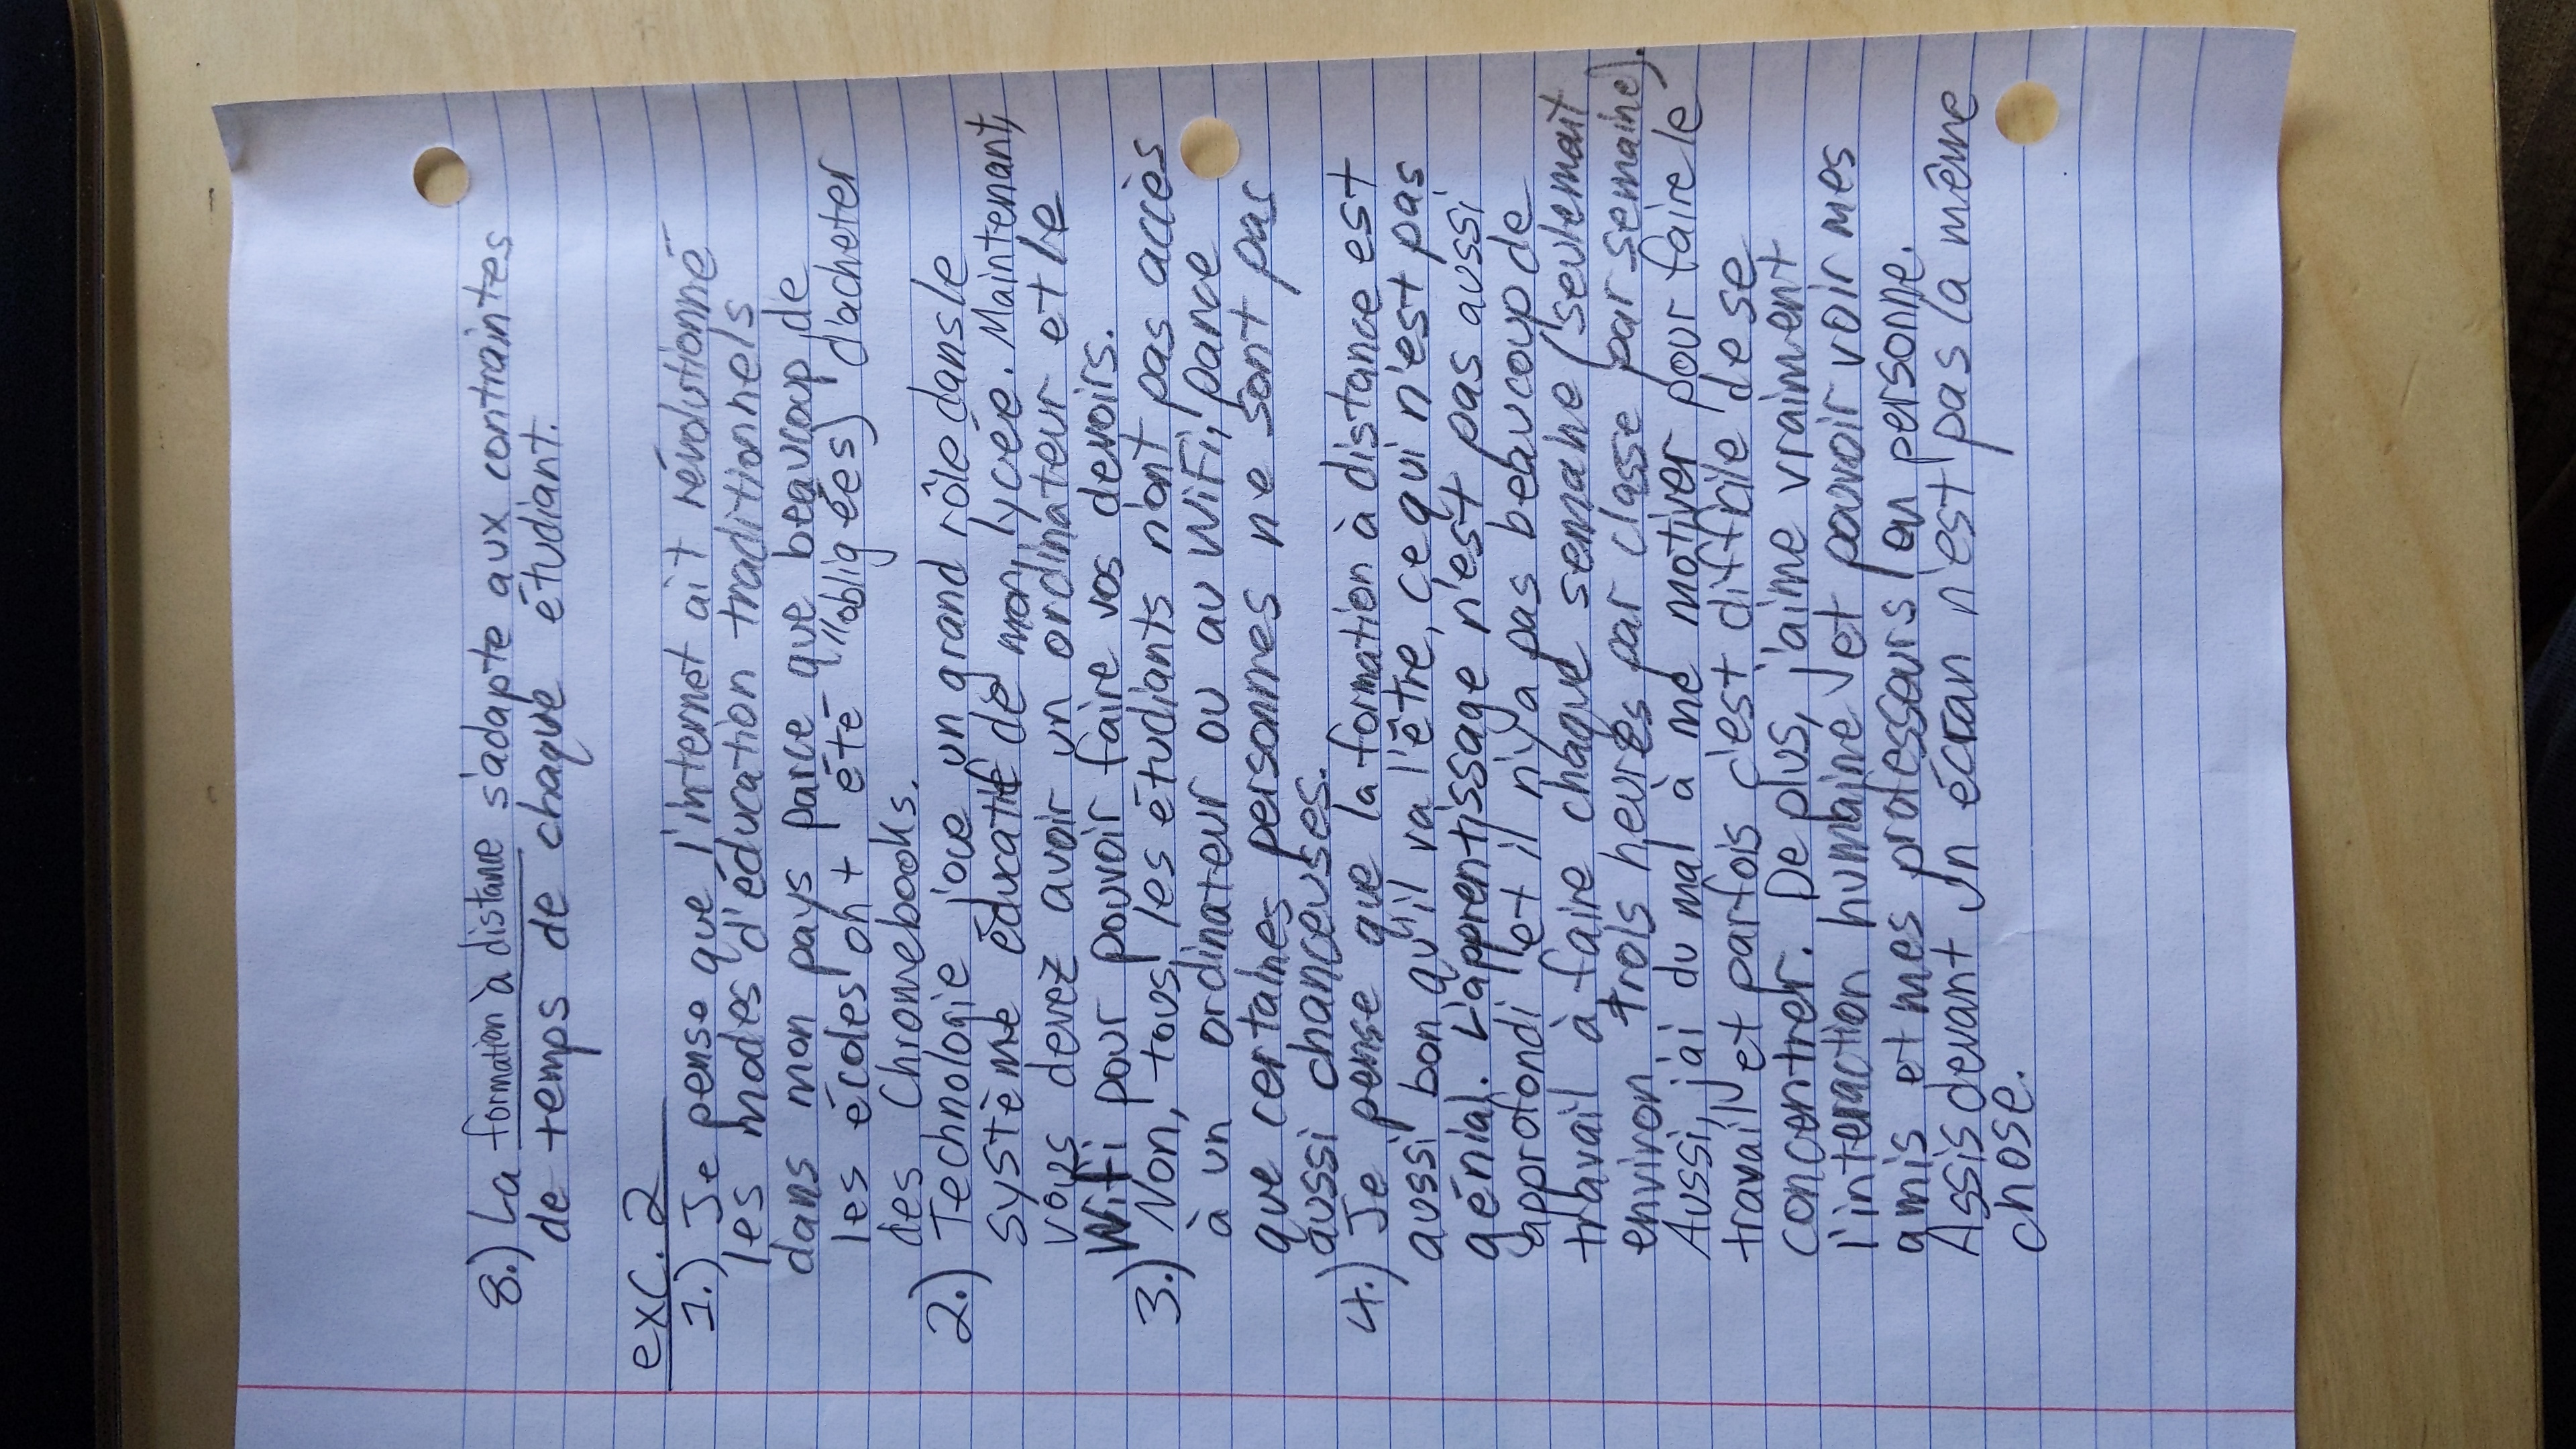 8.) La formation à distance s'adapte aux contraintes
de temps de chaque étudiant.
exc. 2
1.) Je pense que l'internet ait révolutionné
les modes d'éducation traditionnels
dans mon pays parce que beaucoup de
les écoles ont été "obligées) d'acheter
des Chromebooks.
2.) Technologie joue un grand rôle dans le
système éducatif de mon lycée. Maintenant,
vous devez avoir un ordinateur et le
WiFi pour pouvoir faire vos devoirs.
3.) Non, tous les étudiants n'ont pas accès
à un ordinateur ou au WiFi, parce
que certaines personnes ne sont pas
aussi chanceuses.
4.) Je pense que la formation à distance est
aussi bon qu'il va l'être, ce qui n'est pas
génial. L'apprentissage n'est pas aussi
approfondi et il n'y a pas beaucoup de
travail à faire chaque semaine (seulement
environ trois heures par classe par semaine).
Aussi, j'ai du mal à me motiver pour faire le
travail et parfois c'est difficile de se
concentrer. De plus, j'aime vraiment
l'interaction humaine et pouvoir voir mes
amis et mes professeurs en personne.
Assis devant un écran n'est pas la même
chose.